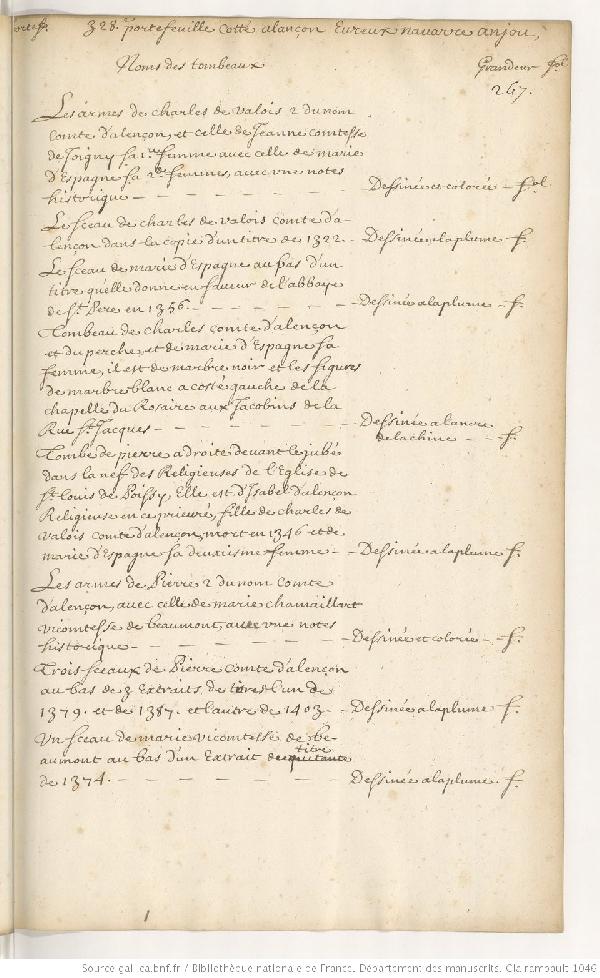 328. portefeuille cotté alançon Evreux navarre anjou,
Noms des tombeaux
Grandeur fol
247.
Les armes de charles de valois 2 du nom
comte d'alençon, et celle de Jeanne comtesse
de Joigny sa 1.re femme avec celle de marie
d'Espagne sa 2e femmes, avec vne notes
historique — — — — — Dessinée et colorié — fol
Le sceau de charles de valois comte d'a-
lençon dans la copie d'un titre de 1322. — Dessinée a la plume — f.
Le sceau de marie d'Espagne au bas d'un
titre qu'elle donne en faveur de l'abbaye
de St. Pere en 1356. — — — — Dessinée a la plume — f.
Tombeau de charles comte d'alençon
et du perche, et de marie d'Espagne sa
femme, il est de marbre noir et les figures
de marbre blanc a costé gauche de la
chapelle du Rosaire aux Jacobins de la
Rue St. Jacques — — — — — Dessinée a l'ancre
de la chine — — f.
Tombe de pierre a droite devant le jubé
dans la nef des Religieuses de l'Eglise de
St. Louis de Poissy, Elle est d'Isabel d'alençon
Religieuse en ce prieuré, fille de charles de
valois comte d'alençon, mort en 1346 et de
marie d'Espagne sa deuxiesme femme — — Dessinée a la plume f.
Les armes de Pierre 2 du nom comte
d'alençon, avec celle de marie chamaillart
vicomtesse de beaumont, avec vne notes
historique — — — — — Dessinée et colorié — f.
Trois sceaux de Pierre comte d'alençon
au bas de 3 Extraits de titres l'un de
1379. et de 1387. et l'autre de 1403. — Dessinée a la plume f.
Un sceau de marie vicomtesse de be-
aumont au bas d'un Extrait de quittance titre
de 1374. — — — — — Dessinée a la plume f.
Source gallica.bnf.fr / Bibliothèque nationale de France. Département des manuscrits. Clairembault 1046